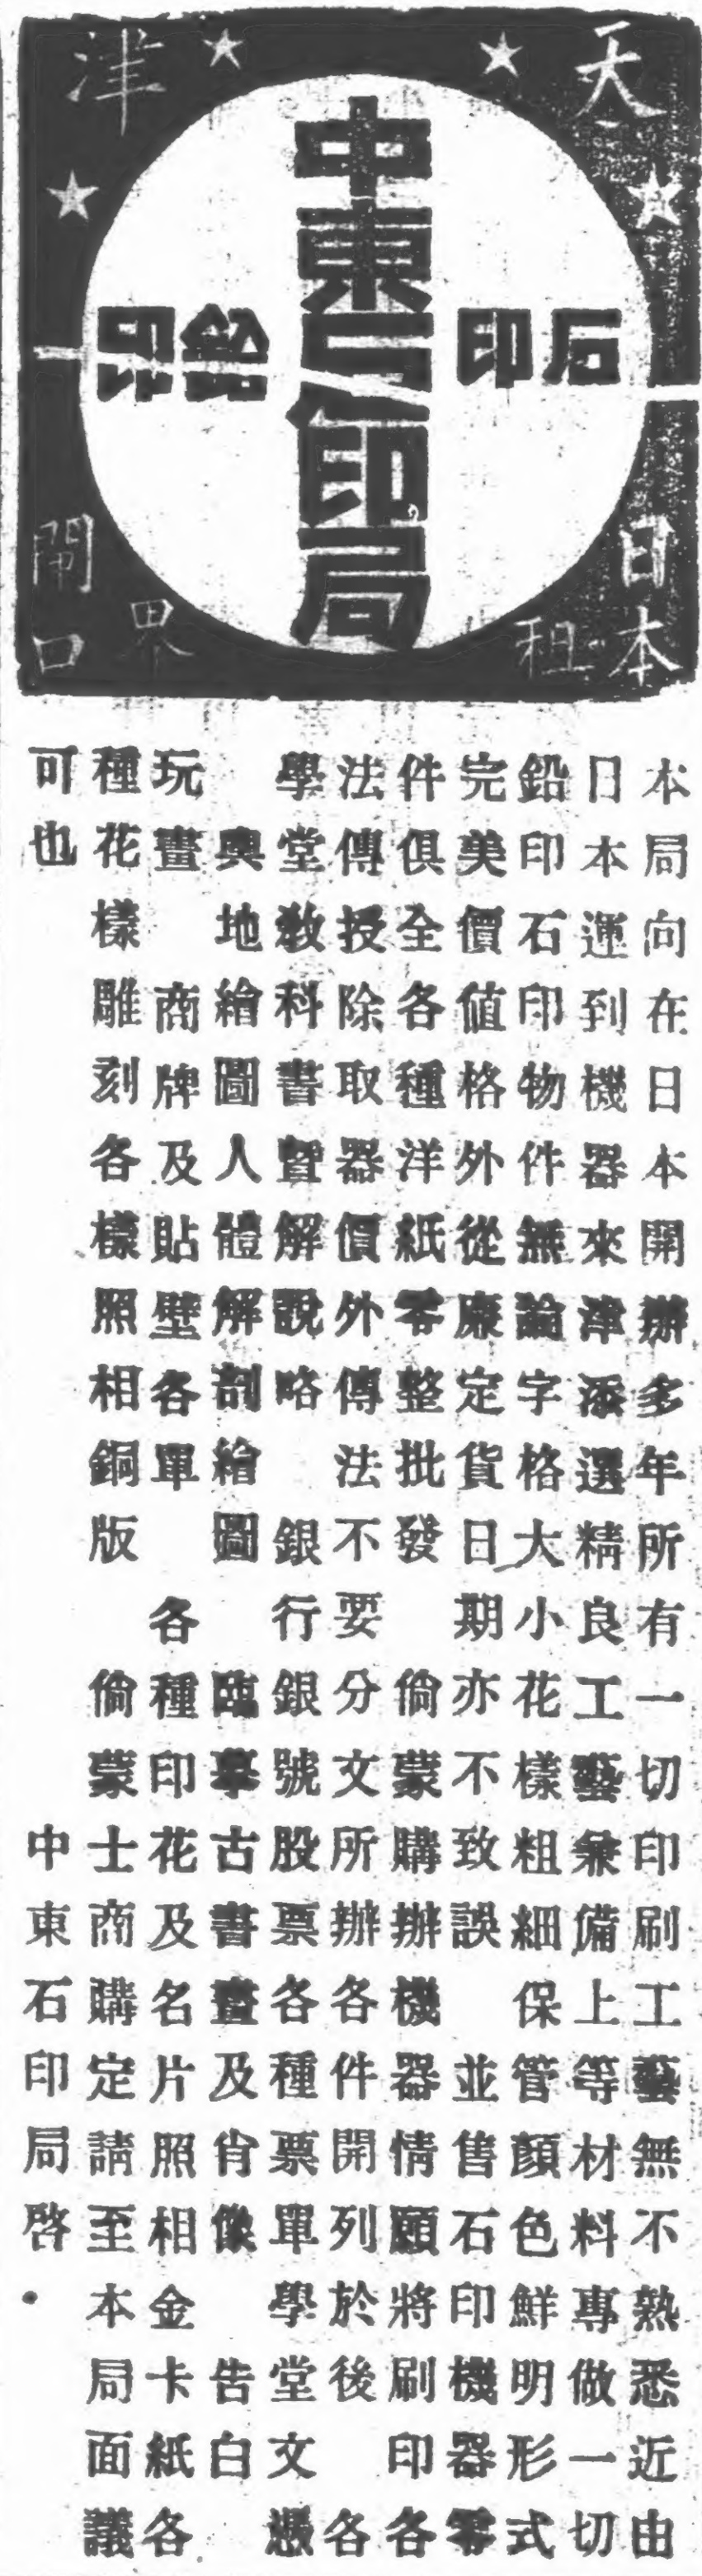 天津
中東石印局
石印
鉛印
日本租界
閘口
本局向在日本開辦多年所有一切印刷工藝無不熟悉近由
日本運到機器來津添選精良工藝兼備上等材料專做一切
鉛印石印物件無論字格大小花樣粗細 保管顏色鮮明形式
完美價值格外從廉定貨日期亦不致誤 並售石印機器零
件俱全各種洋紙零整批發 倘蒙購辦機器情願將刷印各
法傳授除取器價外傳法不要分文所辦各件開列於後 各
學堂敎科書暨解說略 銀行銀號股票各種票單 學堂文憑
輿地繪圖人體解剖繪圖 臨摹古書畫及肖像 告白
玩畫 商牌及貼壁各單 各種印花及名片照相金卡紙各
種花樣雕刻各樣照相銅版 倘蒙士商購定請至本局面議
可也 中東石印局啓